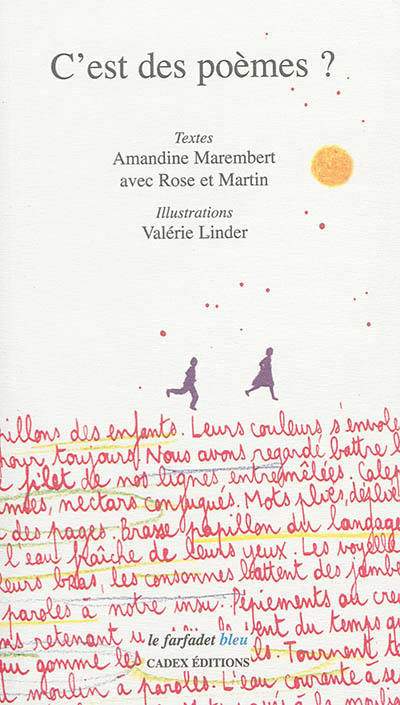 C'est des poèmes ?
Textes
Amandine Marembert
avec Rose et Martin
Illustrations
Valérie Linder
pillons des enfants. Leurs couleurs s'envole
pour toujours. Nous avons regardé battre l
filet de nos lignes entremêlées. Calep
nectars conjugués. Mots pliés, déplié
des pages. Brasse papillon du langage
l'eau fraîche de leurs yeux. Les voyelle
leurs bras, les consonnes battent des jambe
paroles à notre insu. Pépiements au creu
retenant du temps qu
gomme les Tournent
moulin à paroles. L'eau courante à se
le farfadet bleu
CADEX ÉDITIONS